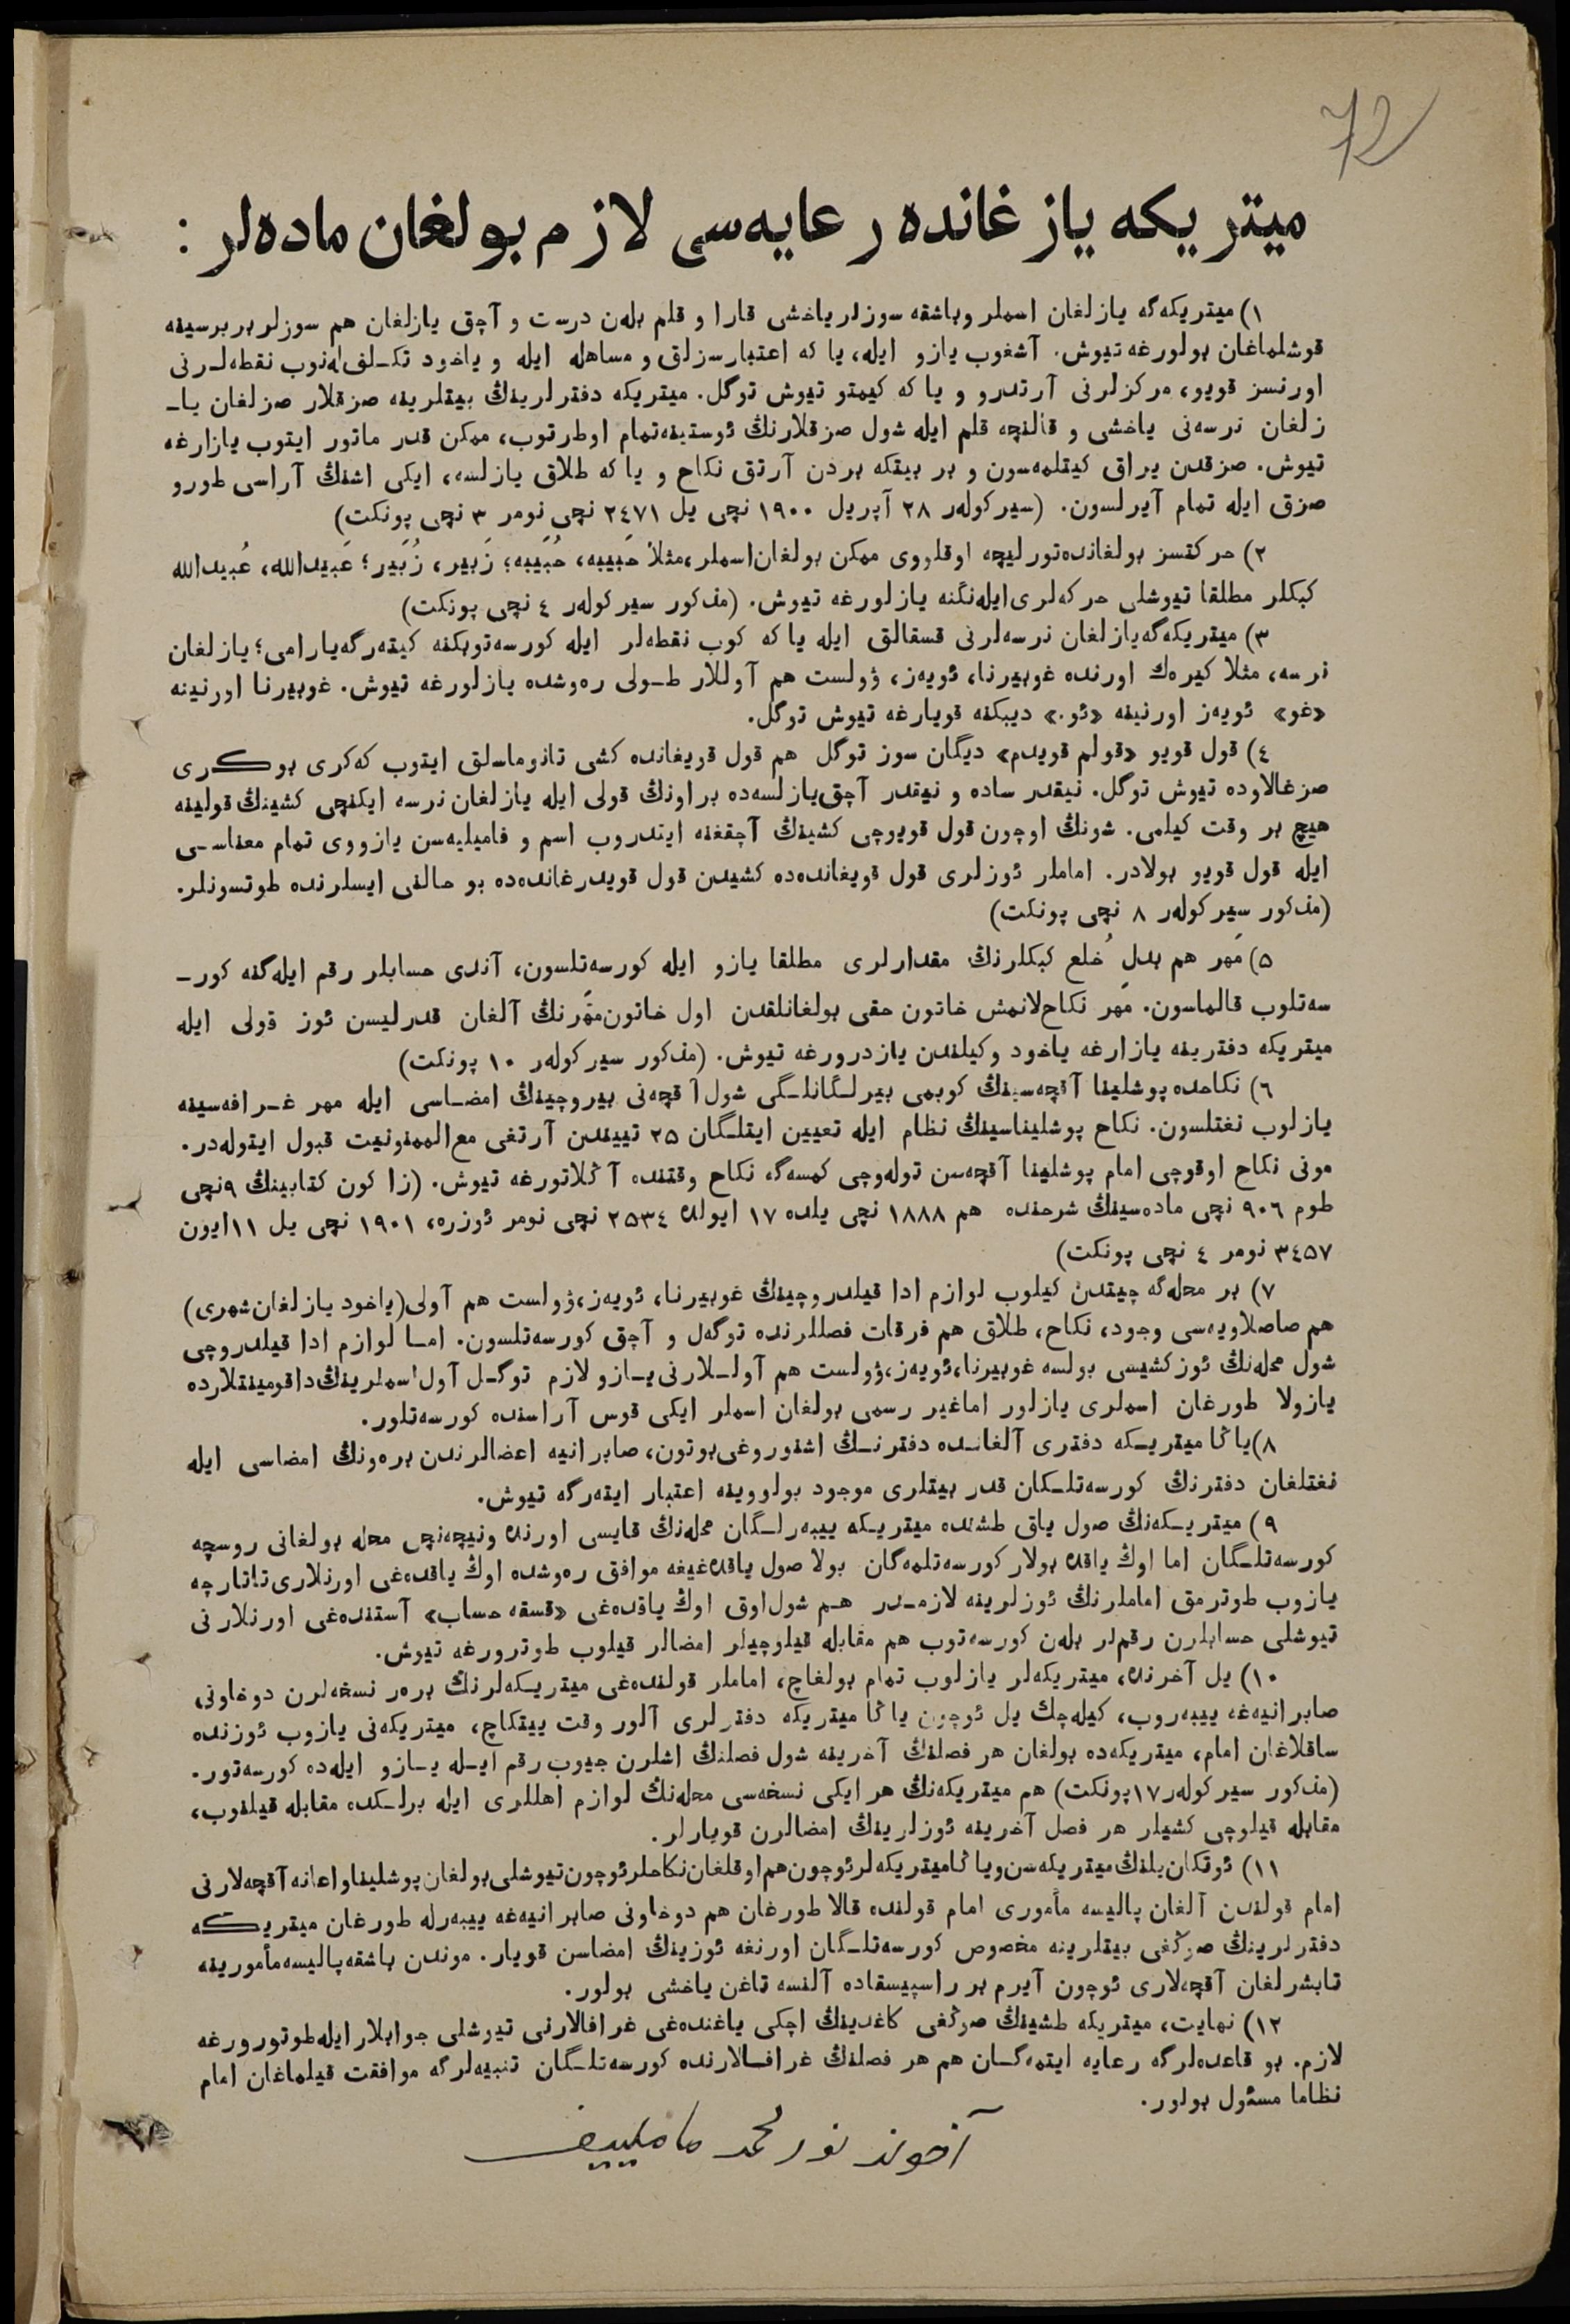 72
میتریکه یازغانده رعایه‌سی لازم بولغان ماده‌لر :
۱) میتریکه‌گه یازلغان اسملر وباشقه سوزلر یاخشی قارا و قلم بله‌ن درست و آچق یازلغان هم سوزلر بربرسینه
قوشلماغان بولورغه تیوش. آشغوب یازو ایله، یا که اعتبارسزلق و مساهله ایله و یاخود تکـلف له‌نوب نقطه‌لـرنی
اورنسز قویو، مرکزلرنی آرتدرو و یا که کیمتو تیوش توگل. میتریکه دفترلرینڭ بیتلرینه صزقلار صزلغان یا-
زلغان نرسه‌نی یاخشی و قالنچه قلم ایله شول صزقلارنڭ ئوستینه‌تمام اوطرتوب، ممکن قدر ماتور ایتوب یازارغه
تیوش. صزقدن یراق کیتلمه‌سون و بر بیتکه بردن آرتق نکاح و یا که طلاق یازلسه، ایکی اشنڭ آراسی طورو
صزق ایله تمام آیرلسون. (سیرکوله‌ر ۲۸ آپریل ۱۹۰۰ نچی یل ۲٤۷۱ نچی نومر ۳ نچی پونکت)
۲) حرکتسز بولغانده‌تورلیچه اوقلووی ممکن بولغان‌اسملر،مثلاً حَبیبه، حُبَیبه؛ زَبیر، زُبَیر؛ عَبیدالله، عُبیدالله
کبکلر مطلقا تیوشلی حرکه‌لری‌ایله‌نگنه یازلورغه تیوش. (مذکور سیرکوله‌ر ٤ نچی پونکت)
۳) میتریکه‌گه‌یازلغان نرسه‌لرنی قسقالق ایله یا که کوب نقطه‌لر ایله کورسه‌توبکنه کیته‌رگه‌یارامی؛ یازلغان
نرسه، مثلا کیره‌ك اورنده غوبیرنا، ئویه‌ز، ۋولست هم آوللار طـولی ره‌وشده یازلورغه تیوش. غوبیرنا اورنینه
«غو» ئویه‌ز اورنینه «ئو.» دیبکنه قویارغه تیوش توگل.
٤) قول قویو «قولم قویدم» دیگان سوز توگل هم قول قویغانده کشی تانوماسلق ایتوب که‌کری بوکـری
صزغالاوده تیوش توگل. نیقدر ساده و نیقدر آچق‌یازلسه‌ده براونڭ قولی ایله یازلغان نرسه ایکنچی کشینڭ قولینه
هیچ بر وقت کیلمی. شونڭ اوچون قول قویوچی کشینڭ آچقغنه ایتدروب اسم و فامیلیه‌سن یازووی تمام معناسـی
ایله قول قویو بولادر. اماملر ئوزلری قول قویغانده‌ده کشیدن قول قویدرغانده‌ده بو حالنی ایسلرنده طوتسونلر.
(مذکور سیرکوله‌ر ۸ نچی پونکت)
۵) مَهر هم بدلِ خُلع کبکلرنڭ مقدارلری مطلقا یازو ایله کورسه‌تلسون، آندی حسابلر رقم ایله‌گنه کور-
سه‌تلوب قالماسون. مَهر نکاح‌لانمش خاتون حقی بولغانلقدن اول خاتون‌مَهرنڭ آلغان قدرلیسن ئوز قولی ایله
میتریکه دفترینه یازارغه یاخود وکیلندن یازدرورغه تیوش. (مذکور سیرکوله‌ر ۱۰ پونکت)
٦) نکاحده پوشلینا آقچه‌سینڭ کوبمی بیرلـگانلـگی شول آقچه‌نی بیروچینڭ امضـاسی ایله مهر غـرافه‌سینه
یازلوب نغتلسون. نکاح پوشلیناسینڭ نظام ایله تعیین ایتلـگان ۲۵ تییندن آرتغی مع‌الممنونیت قبول ایتوله‌در.
مونی نکاح اوقوچی امام پوشلینا آقچه‌سن توله‌وچی کمسه‌گه نکاح وقتنده آڭلاتورغه تیوش. (زاکون کتابینڭ ۹نچی
طوم ۹۰٦ نچی ماده‌سینڭ شرحنده هم ۱۸۸۸ نچی یلده ۱۷ ایولده ۲۵۳٤ نچی نومر ئوزره، ۱۹۰۱ نچی یل ۱۱ایون
۳٤۵۷ نومر ٤ نچی پونکت)
۷) بر محله‌گه چیتدن کیلوب لوازم ادا قیلدروچینڭ غوبیرنا، ئویه‌ز،ۋولست هم آولی(یاخود یازلغان‌شهری)
هم صاصلاویه‌سی وجود، نکاح، طلاق هم فرقات فصللرنده توگه‌ل و آچق کورسه‌تلسون. امـا لوازم ادا قیلدروچی
شول محله‌نڭ ئوزکشیسی بولسه غوبیرنا،ئویه‌ز،ۋولست هم آولـلارنی‌یـازو لازم توگـل آول اسملرینڭ‌داقومینتلارده
یازولا طورغان اسملری یازلور اماغیر رسمی بولغان اسملر ایکی قوس آراسنده کورسه‌تلور.
۸)یاڭا میتریـکه دفتری آلغانـده دفترنـڭ اشنوروغی‌بوتون، صابرانیه اعضالرندن بره‌ونڭ امضاسی ایله
نغتلغان دفترنڭ کورسه‌تلـکان قدر بیتلری موجود بولووینه اعتبار ایته‌رگه تیوش.
۹) میتریـکه‌نڭ صول یاق طشنده میتریـکه ییبه‌رلـگان محله‌نڭ قایسی اورنده ونیچه‌نچی محله بولغانی روسچه
کورسه‌تلـگان اما اوڭ یاقده بولار کورسه‌تلمه‌گان بولا صول یاقده‌غیغه موافق ره‌وشده اوڭ یاقده‌غی اورنلاری‌تاتارچه
یازوب طوترمق اماملرنڭ ئوزلرینه لازمـدر هـم شول‌اوق اوڭ یاقده‌غی «قسقه حساب» آستنده‌غی اورنلارنی
تیوشلی حسابلرن رقم‌لر بله‌ن کورسه‌توب هم مقابله قیلوچیلر امضالر قیلوب طوترورغه تیوش.
۱۰) یل آخرنده، میتریکه‌لر یازلوب تمام بولغاچ، اماملر قولنده‌غی میتریـکه‌لرنڭ بره‌ر نسخه‌لرن دوخاونی
صابرانیه‌غه ییبه‌روب، کیله‌چك یل ئوچون یاڭا میتریکه دفترلری آلور وقت ییتکاچ، میتریکه‌نی یازوب ئوزنده
ساقلاغان امام، میتریکه‌ده بولغان هر فصلنڭ آخرینه شول فصلنڭ اشلرن جیوب رقم ایـله یـازو ایله‌ده کورسه‌تور.
(مذکور سیرکوله‌ر ۱۷پونکت) هم میتریکه‌نڭ هر ایکی نسخه‌سی محله‌نڭ لوازم اهللری ایله برلـکده مقابله قیلنوب،
مقابله قیلوچی کشیلر هر فصل آخرینه ئوزلرینڭ امضالرن قویارلر.
۱۱) ئوتکان‌یلنڭ‌میتریکه‌سن‌ویاڭامیتریکه‌لرئوچون‌هم‌اوقلغان‌نکاحلرئوچون‌تیوشلی‌بولغان‌پوشلیناواعانه‌آقچه‌لارنی
امام قولندن آلغان پالیسه مأموری امام قولنده قالا طورغان هم دوخاونی صابرانیه‌غه ییبه‌رله طورغان میتریکـه
دفترلرینڭ صوڭغی بیتلرینه مخصوص کورسه‌تلـگان اورنغه ئوزینڭ امضاسن قویار. موندن باشقه‌پالیسه‌مأمورینه
تابشرلغان آقچه‌لاری ئوچون آیرم بر راسپیسقاده آلنسه تاغن یاخشی بولور.
۱۲) نهایت، میتریکه طشینڭ صوڭغی کاغدینڭ اچکی یاغنده‌غی غرافالارنی تیوشلی جوابلارایله‌طوتورورغه
لازم. بو قاعده‌لرگه رعایه ایتمه‌گـان هم هر فصلنڭ غرافـالارنده کورسه‌تلـگان تنبیه‌لرگه موافقت قیلماغان امام
نظاما مسئول بولور.
آخوند نورمحمد مامیلییف